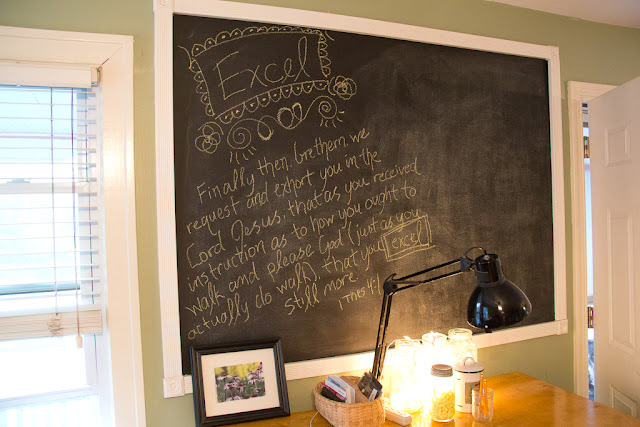 Excel
Finally then, brethern, we
request and exhort you in the
Lord Jesus, that as you received
instruction as to how you ought to
walk and please God (just as you
actually do walk), that you excel
still more.
1 Thes 4:1